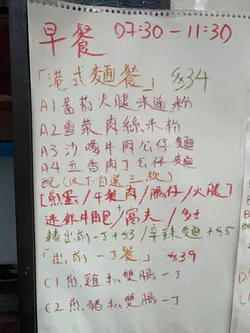 早餐 07:30-11:30
「港式麵餐」 $34
A1 蕃茄火腿米通粉
A2 雪菜肉絲米粉
A3 沙嗲牛肉公仔麵
A4 五香肉丁公仔麵
配(以下自選二款)
[煎蛋/午餐肉/腸仔/火腿]
迷你牛角包/窩夫/多士
轉出前一丁+$3/辛辣麵+$5
「出前一丁餐」 $39
C1 煎雞扒雙腸一丁
C2 煎豬扒雙腸一丁